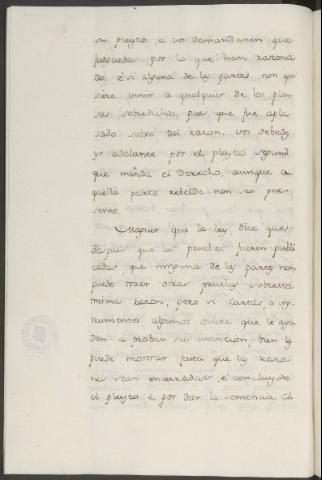 su pleyto, e vos demandaren que
judguedes por lo que han razona
do, é si alguna de las partes non qui
siere venir a qualquier de los pla
zos sobredichos, pues que fue apla
zado sobre tal razon, vos debedes
yr adelante por el pleyto segund
que manda el derecho, aunque a
quella parte rebelde non sea pre
sente.
Maguer que la ley dice que
despues que las pruebas fueren publi
cadas, que ninguna de las partes non
puede traer otras pruebas sobresta
misma razon, pero si cartas, o ins
trumentos algunos oviere que le ayu
den a probar su intencion, bien las
puede mostrar fasta que las razo
nes sean encerradas, é concluydo
el pleyto, é por dar la sentencia. Ca